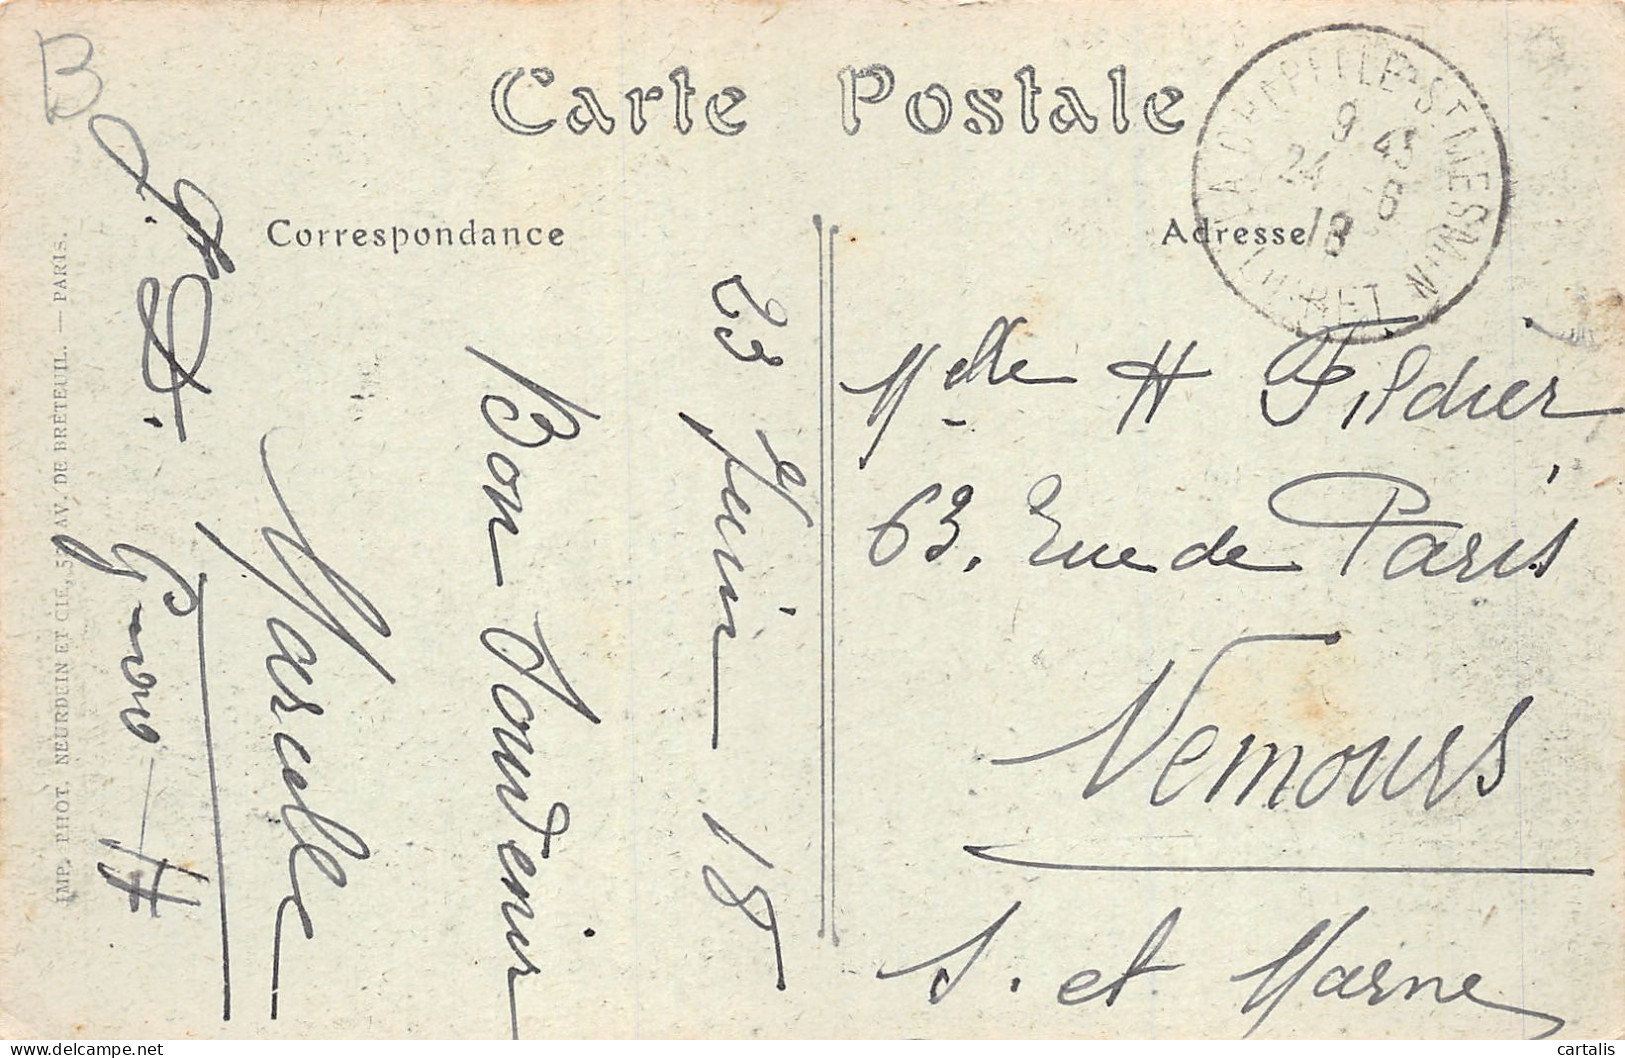 B
Carte Postale
Correspondance
Adresse
LA CHAPELLE-ST MESMIN
9 45
24 6
18
LOIRET
23 Juin 18
Bon Souvenir
Marcelle
IMP. PHOT. NEURDEIN ET CIE, 52, AV. DE BRETEUIL. — PARIS.
Melle H Fildier
63. Rue de Paris
Nemours
S. et Marne
cartalis